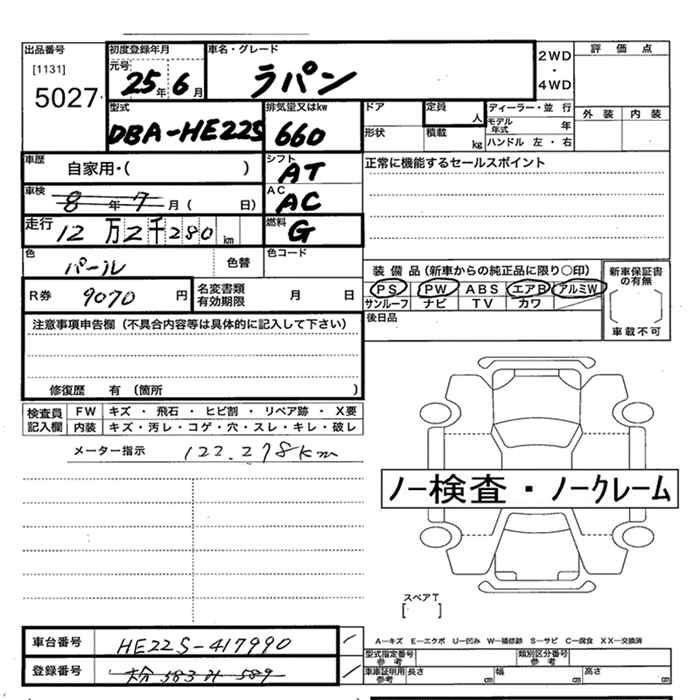 出品番号 初度登録年月 車名・グレード 2WD 評価点
[1131] 元号 ・
5027 25年 6月 ラパン 4WD
外装 内装
型式 排気量又はkw ドア 定員 人 ディーラー・並行
DBA-HE22S 660 形状 積載 kg モデル年式 年
ハンドル 左・右
車歴 自家用・( ) シフト AT 正常に機能するセールスポイント
車検 8年 7月( 日) AC AC
走行 12万2千280km 燃料 G
色 パール 色替 色コード
装備品(新車からの純正品に限り○印) 新車保証書の有無
R券 9070円 名変書類有効期限 月 日 PS PW ABS エアB アルミW
サンルーフ ナビ TV カワ
車載不可
注意事項申告欄(不具合内容等は具体的に記入して下さい) 後日品
修復歴 有 (箇所 )
検査員記入欄 FW キズ・飛石・ヒビ割・リペア跡・X要
内装 キズ・汚レ・コゲ・穴・スレ・キレ・破レ
メーター指示 122.278km
ノー検査・ノークレーム
スペアT
[ ]
車台番号 HE22S-417990
A－キズ E－エクボ U－凹み W－補修跡 S－サビ C－腐食 XX－交換済
型式指定番号 参考 類別区分番号 参考
登録番号 大分 583 589
車庫証明用 参考 長さ cm 幅 cm 高さ cm